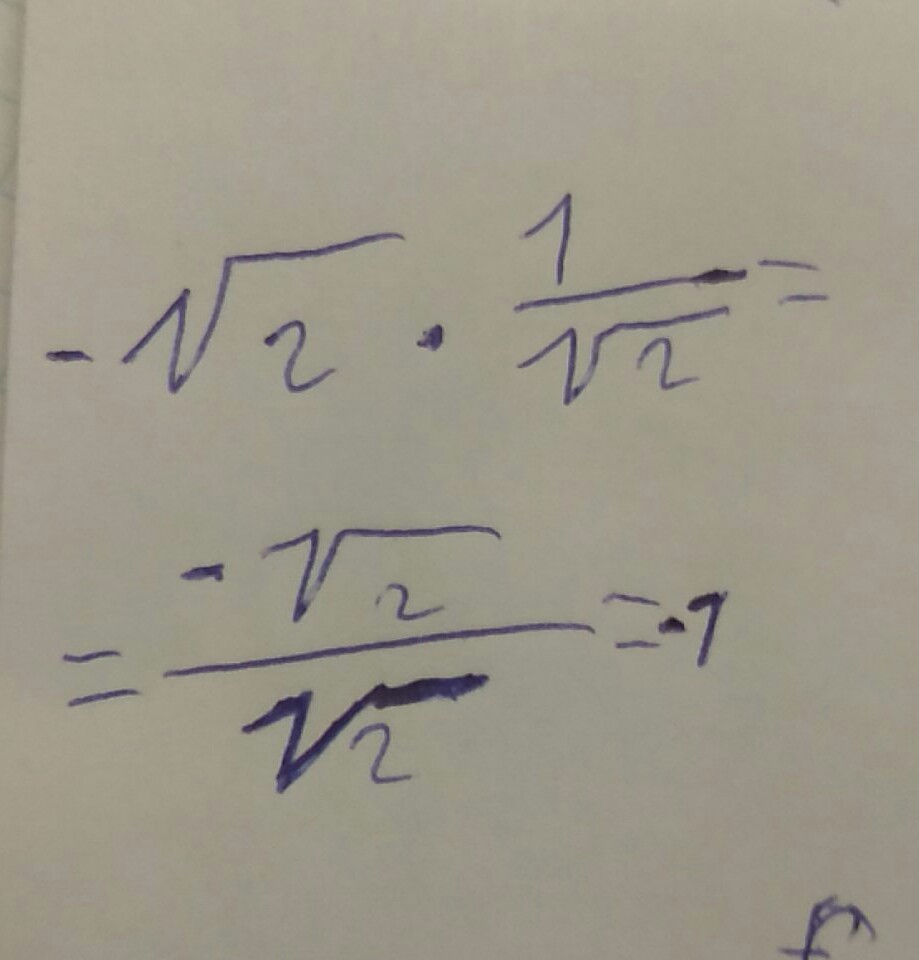 -√2 · 1/√2 =
= -√2/√2 = -1